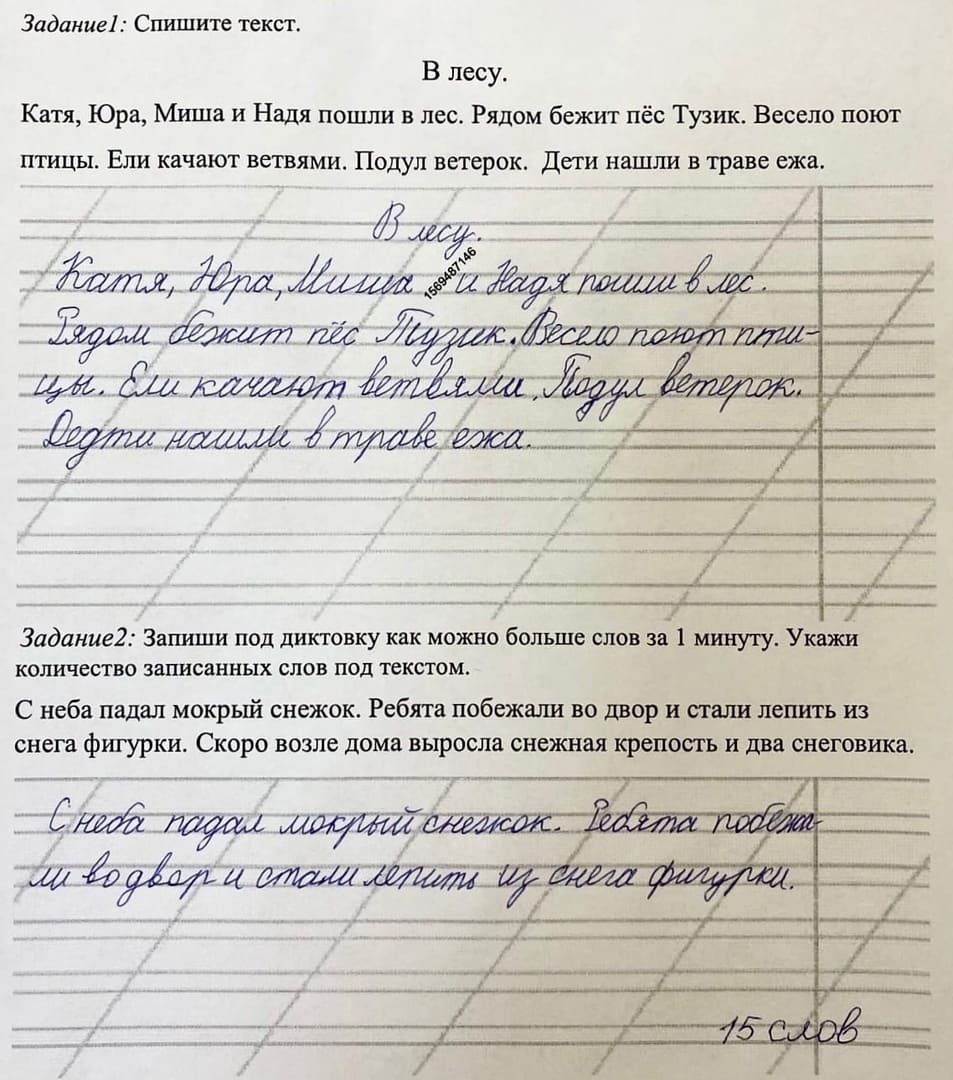 Задание1: Спишите текст.
В лесу.
Катя, Юра, Миша и Надя пошли в лес. Рядом бежит пёс Тузик. Весело поют
птицы. Ели качают ветвями. Подул ветерок. Дети нашли в траве ежа.
В лесу.
Катя, Юра, Миша и Надя пошли в лес.
1569487146
Рядом бежит пёс Тузик. Весело поют пти-
цы. Ели качают ветвями. Подул ветерок.
Дедти нашли в траве ежа.
Задание2: Запиши под диктовку как можно больше слов за 1 минуту. Укажи
количество записанных слов под текстом.
С неба падал мокрый снежок. Ребята побежали во двор и стали лепить из
снега фигурки. Скоро возле дома выросла снежная крепость и два снеговика.
С неба падал мокрый снежок. Ребята побежа-
ли во двор и стали лепить из снега фигурки.
15 слов